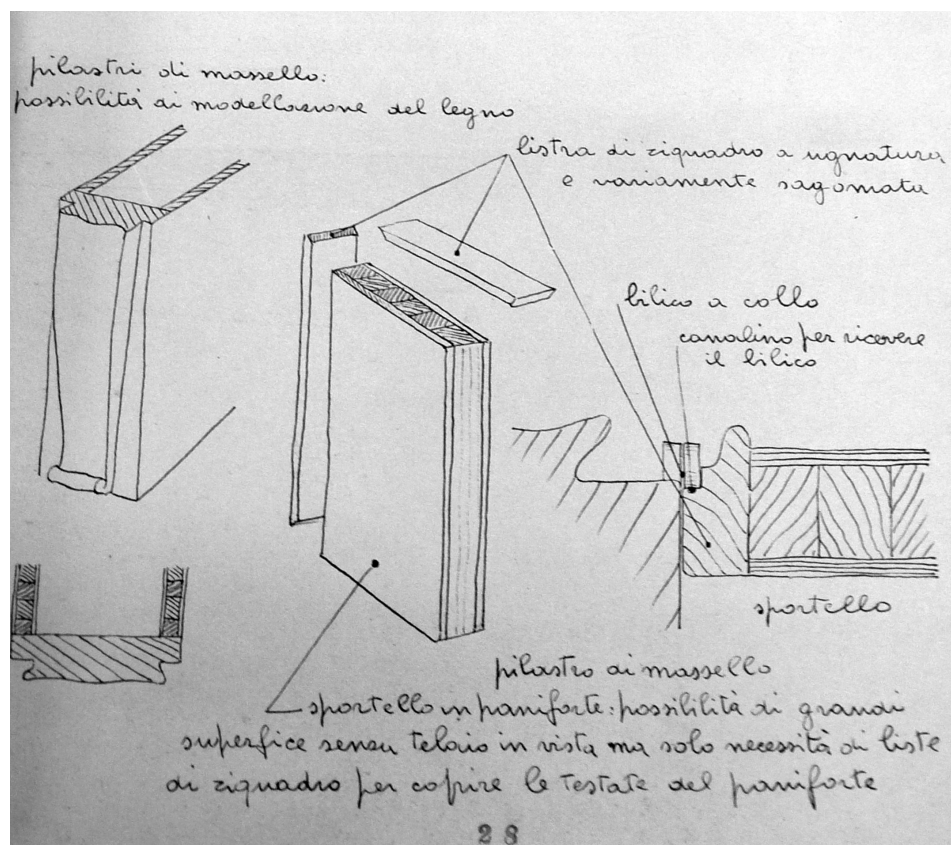 pilastri di massello:
possibilità di modellazione del legno
listra di riquadro a ugnatura
e variamente sagomata
bilico a collo
canalino per ricevere
il bilico
sportello
pilastro di massello
sportello in paniforte: possibilità di grandi
superfice senza telaio in vista ma solo necessità di liste
di riquadro per copire le testate del paniforte
28